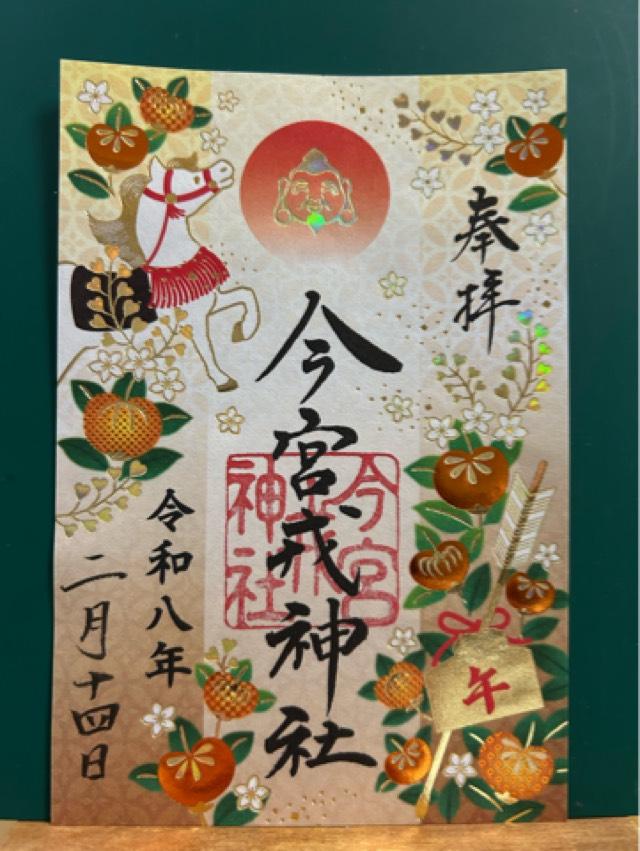 奉拝
今宮戎神社
今宮戎神社
令和八年
二月十四日
午